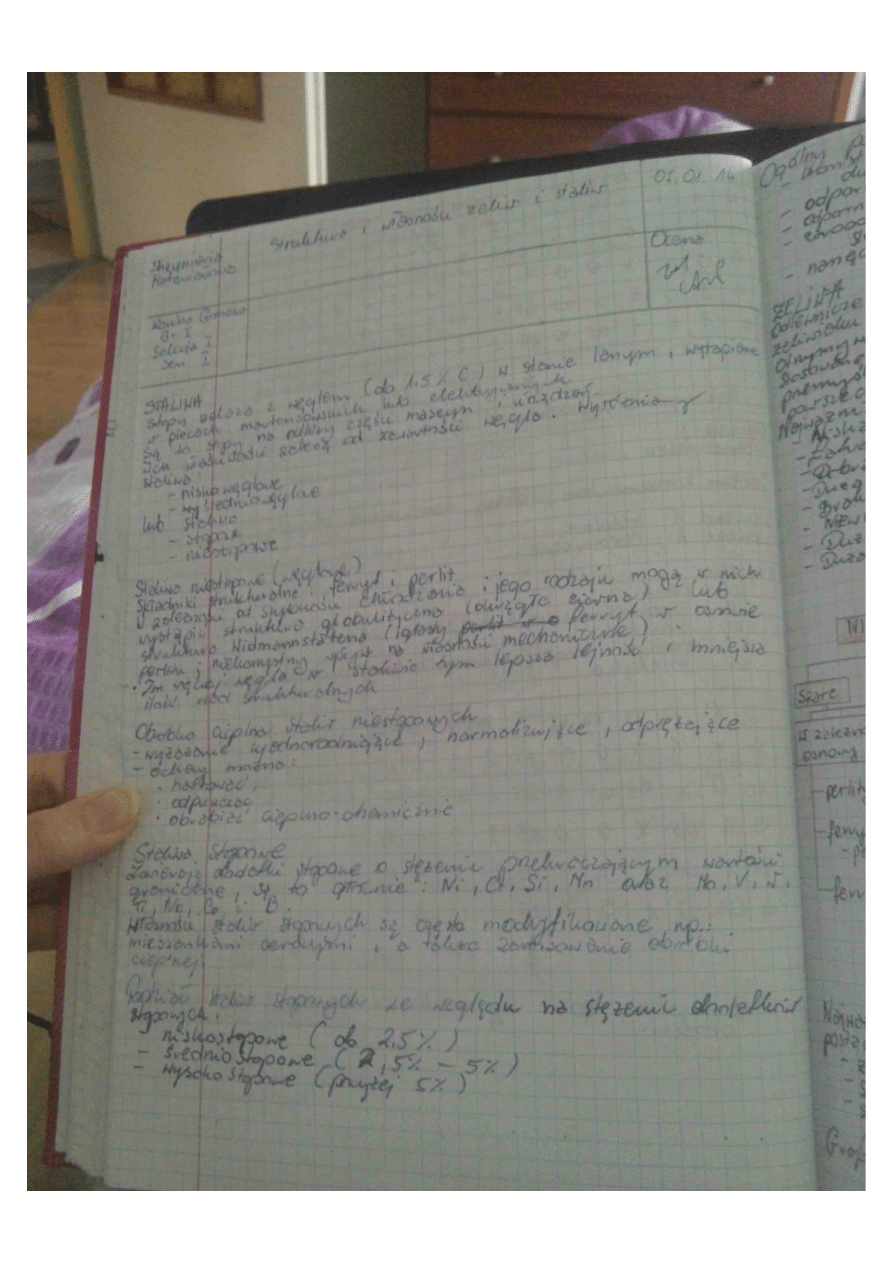 Inżynieria
Materiałowa
Struktura i własności żeliw i staliw
07.01.14
Ocena
Gr. I
Sekcja I
sem I
STALIWA
Stopy żelaza z węglem (do 1.5% C) w stanie lanym, wytapiane
w piecach martenowskich lub elektrycznych
Są to stopy na odlewy części maszyn i urządzeń.
Ich właściwości zależą od zawartości węgla. Wyróżniamy
staliwa
- niskowęglowe
- wyśredniowęglowe
lub staliwo
- stopowe
- niestopowe
Staliwo niestopowe (węglowe)
Składniki strukturalne: ferryt i perlit
W zależności od szybkości chłodzenia i jego rodzaju mogą w nich
wystąpić struktura globulityczna (okrągłe ziarna) lub
struktura Widmannstattena (igłasty ferryt w osnowie
perlitu, niekorzystny wpływ na własności mechaniczne).
· Im więcej węgla w staliwie tym lepsza lejność i mniejsza
ilość wad strukturalnych
Obróbka cieplna staliw niestopowych
- wyżarzanie ujednorodniające, normalizujące, odprężające
- odlewy można:
· hartować,
· odpuszczać
· obrabiać cieplno-chemicznie
Staliwa stopowe
Zawierają dodatki stopowe o stężeniu przekraczającym wartości
graniczne, są to głównie: Ni, Cr, Si, Mn oraz Mo, V, W,
Ti, Nb, Co i B.
Własności staliw stopowych są często modyfikowane np.:
mieszankami, a także zastosowanie obróbki
cieplnej.
Podział staliw stopowych ze względu na stężenie dodatków
stopowych:
- niskostopowe (do 2,5%)
- średniostopowe (2,5% - 5%)
- wysokostopowe (powyżej 5%)
Ogólny
- odpor
ŻELIWA
odlewnicze
Otrzymyw
Stosowane
przemyśl
powszec
- Nisk
- Dobr
- Brak
- Duż
- Duża
Szare
W zależno
osnowy
- perlit
- ferry
- ferr
Graf